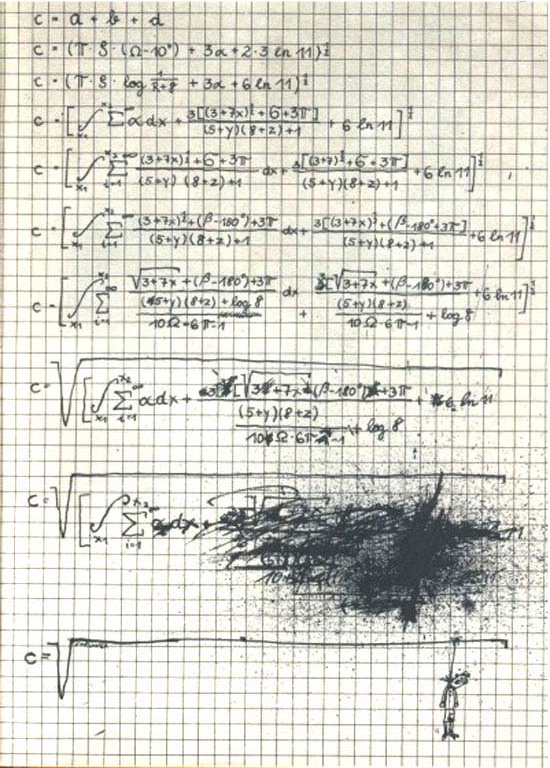 c = a + b + d
c = (π · S · (Ω-10°) + 3a + 2·3 ln 11)^½
c = (π · S · log 1/(x+8) + 3a + 6 ln 11)^½
c = [∫_{x₁}^{x₂} ∑^∞ α dx + 3[(3+7x)^½+6+3π]/((5+y)(8+z)+1) + 6 ln 11]^½
c = [∫_{x₁}^{x₂} ∑_{i=1}^∞ ((3+7x)^½+6+3π)/((5+y)(8+z)+1) dx + 3[(3+7)^½+6+3π]/((5+y)(8+z)+1) + 6 ln 11]^½
c = [∫_{x₁}^{x₂} ∑_{i=1}^∞ ((3+7x)^½+(β-180°)+3π)/((5+y)(8+z)+1) dx + 3[(3+7x)^½+(β-180°+3π]/((5+y)(8+z)+1) + 6 ln 11]^½
c = [∫_{x₁}^{x₂} ∑_{i=1}^∞ (√(3+7x)+(β-180°)+3π)/(((5+y)(8+z)+log 8)/(10Ω-6π-1)) dx + 3[√(3+7x)+(β-180°)+3π/((5+y)(8+z)/(10Ω·6π-1) + log 8) + 6 ln 11]^½
c = √[∫_{x₁}^{x₂} ∑_{i=1}^∞ α dx + 3[√(3+7x)+(β-180°)+3π/((5+y)(8+z)/(10Ω·6π-1) + log 8) + 6 ln 11
c = √[∫_{x₁}^{x₂} ∑_{i=1}^∞ α dx +
c = √